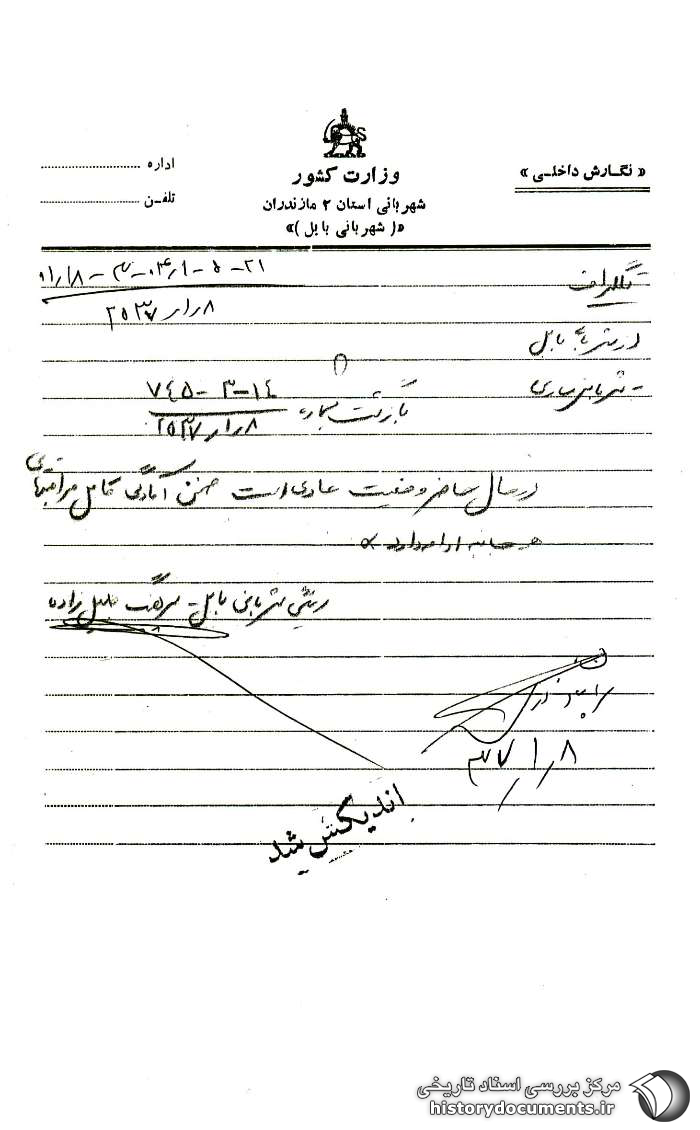 « نگارش داخلی »
وزارت کشور
شهربانی استان ۲ مازندران
«( شهربانی بابل )»
اداره
تلفن
تلگراف
۲۱ - ۵ -
۸ر۱ر۲۵۳۷
از شهربانی بابل
- شهربانی ساری
بازگشت بشماره
۷۴۵ - ۳ - ۱۴
۸ر۱ر۲۵۳۷
در حال حاضر وضعیت عادی است ضمن آمادگی کامل مراقبتهای
همه جانبه ادامه دارد
رئیس شهربانی بابل - سرهنگ خلیل زاده
۳۷ر۱ر۸
اندیکس شد
مرکز بررسی اسناد تاریخی
historydocuments.ir